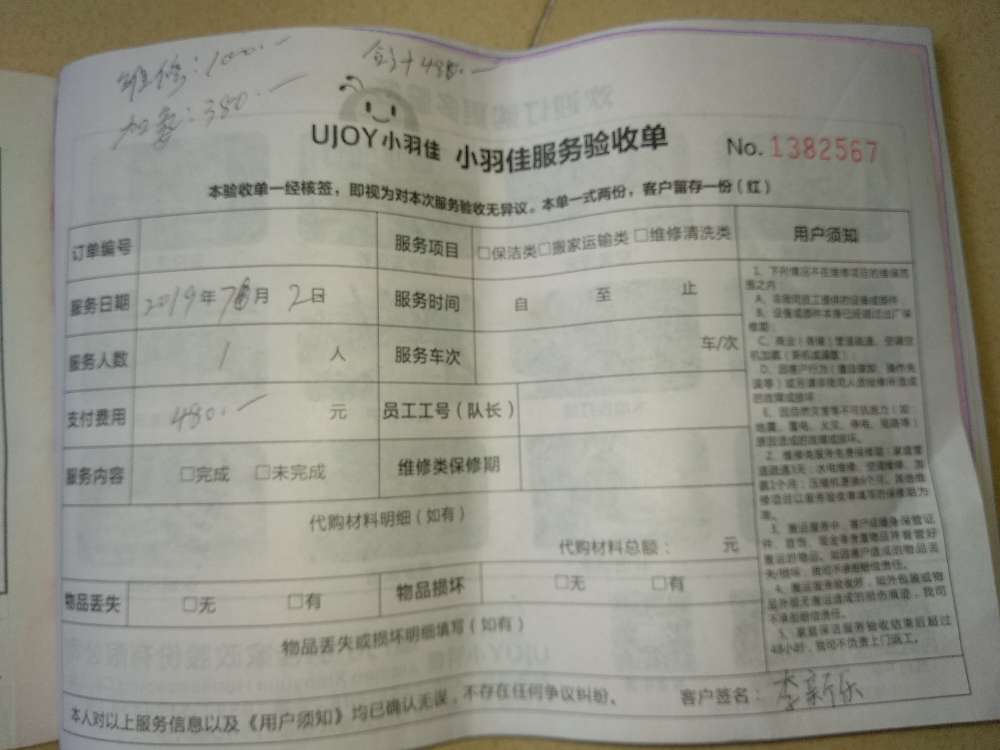 维修：100.一
合计480.一
加氟：380.一
UJOY小羽佳 小羽佳服务验收单 No.1382567
本验收单一经核签，即视为对本次服务验收无异议。本单一式两份，客户留存一份（红）
订单编号 服务项目 □保洁类□搬家运输类□维修清洗类 用户须知
服务日期 2019年7月2日 服务时间 自 至 止
服务人数 1 人 服务车次 车/次
支付费用 480.一 元 员工工号（队长）
服务内容 □完成 □未完成 维修类保修期
代购材料明细（如有）
代购材料总额： 元
物品丢失 □无 □有 物品损坏 □无 □有
物品丢失或损坏明细填写（如有）
1、下列情况不在维修项目的维保范
围之内：
A、非我司员工提供的设备或部件
B、设备或部件本身已经超过出厂保
修期；
地震、雷电、火灾、停电、
原因造成的故障或损坏。
2、维修类服务免费保修期：家庭管
道疏通3天，水电维修、空调维修、加
氟2个月；压缩机更换6个月。其他维
修项目以服务验收单填写的保修期为
准。
3、搬运服务中，客户应随身保管证
件、首饰、现金等贵重物品并看管好
搬运的物品。如因客户造成的物品丢
失/损坏，我司不承担赔偿责任。
4、搬运服务验收时，如外包装或物
品外部无搬运造成的损伤痕迹，我司
不承担赔偿责任。
5、家庭保洁服务验收结束后超过
48小时，我司不负责上门返工。
本人对以上服务信息以及《用户须知》均已确认无误，不存在任何争议纠纷。 客户签名：李新乐